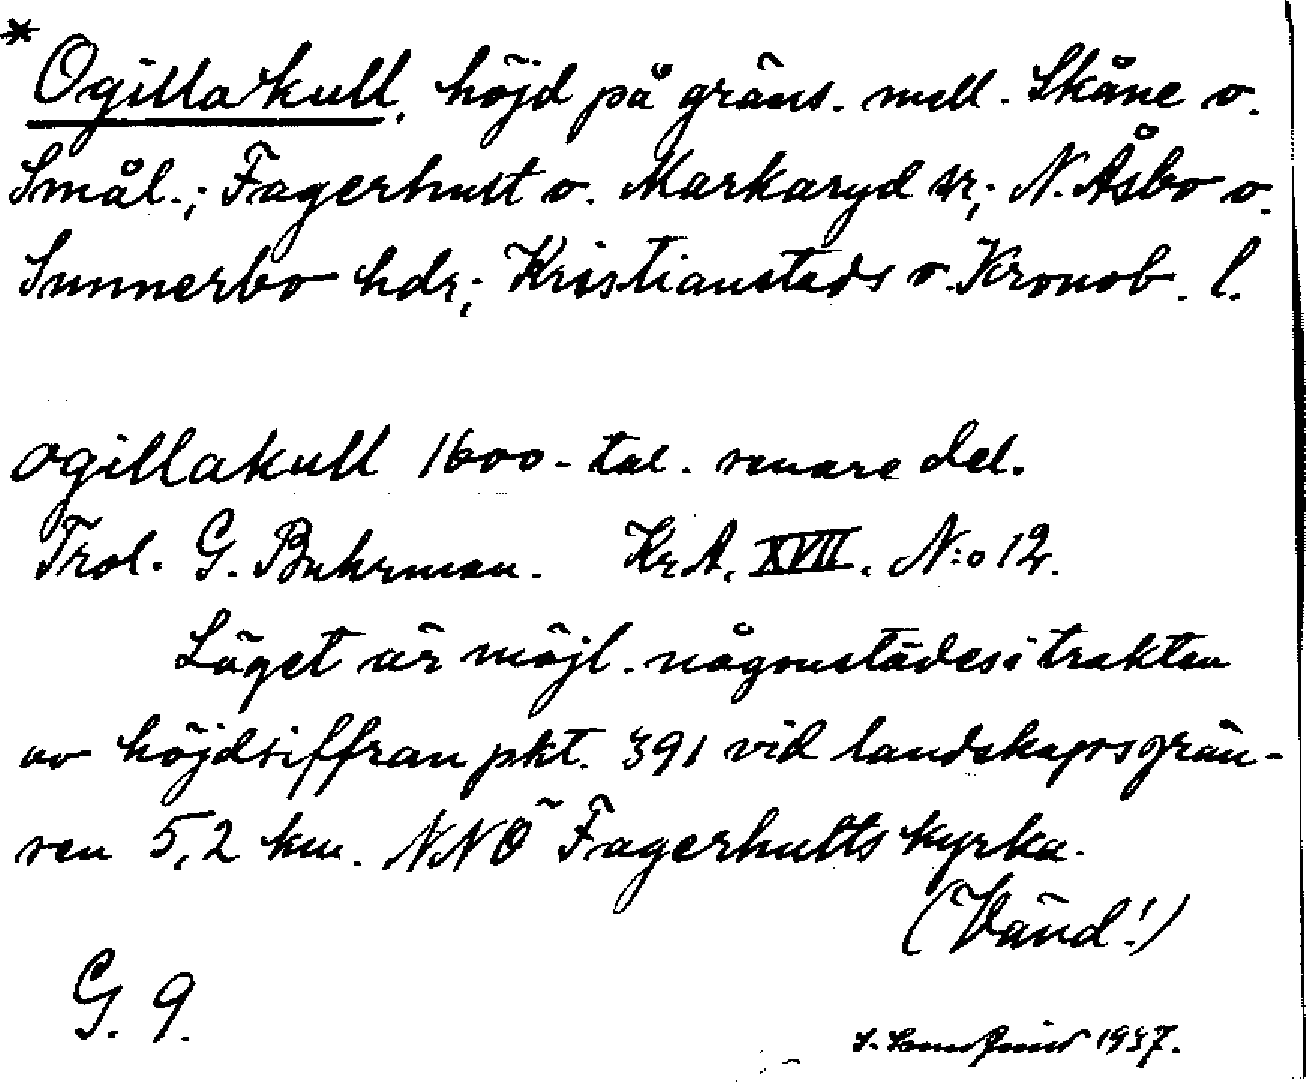 * Ogillakull, höjd på gräns. mell. Skåne o.
Smål.; Fagerhult o. Markaryd sr; N. Åsbo o.
Sunnerbo hdr; Kristianstads o. Kronob. l.
ogillakull 1600-tal. senare del.
Trol. G. Buhrman. Kr.A. XVII. N:o 12.
Läget är möjl. någonstädes i trakten
av höjdsiffran pkt. 391 vid landskapsgrän-
sen 5,2 km. NNÖ Fagerhults kyrka.
(Vänd!)
G. 9.
S. 1937.